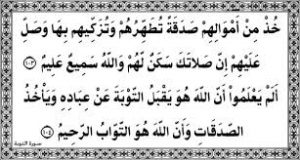 خُذْ مِنْ أَمْوَالِهِمْ صَدَقَةً تُطَهِّرُهُمْ وَتُزَكِّيهِم بِهَا وَصَلِّ
عَلَيْهِمْ إِنَّ صَلَاتَكَ سَكَنٌ لَّهُمْ وَاللَّهُ سَمِيعٌ عَلِيمٌ ١٠٣
أَلَمْ يَعْلَمُوا أَنَّ اللَّهَ هُوَ يَقْبَلُ التَّوْبَةَ عَنْ عِبَادِهِ وَيَأْخُذُ
الصَّدَقَاتِ وَأَنَّ اللَّهَ هُوَ التَّوَّابُ الرَّحِيمُ ١٠٤
سورة التوبة